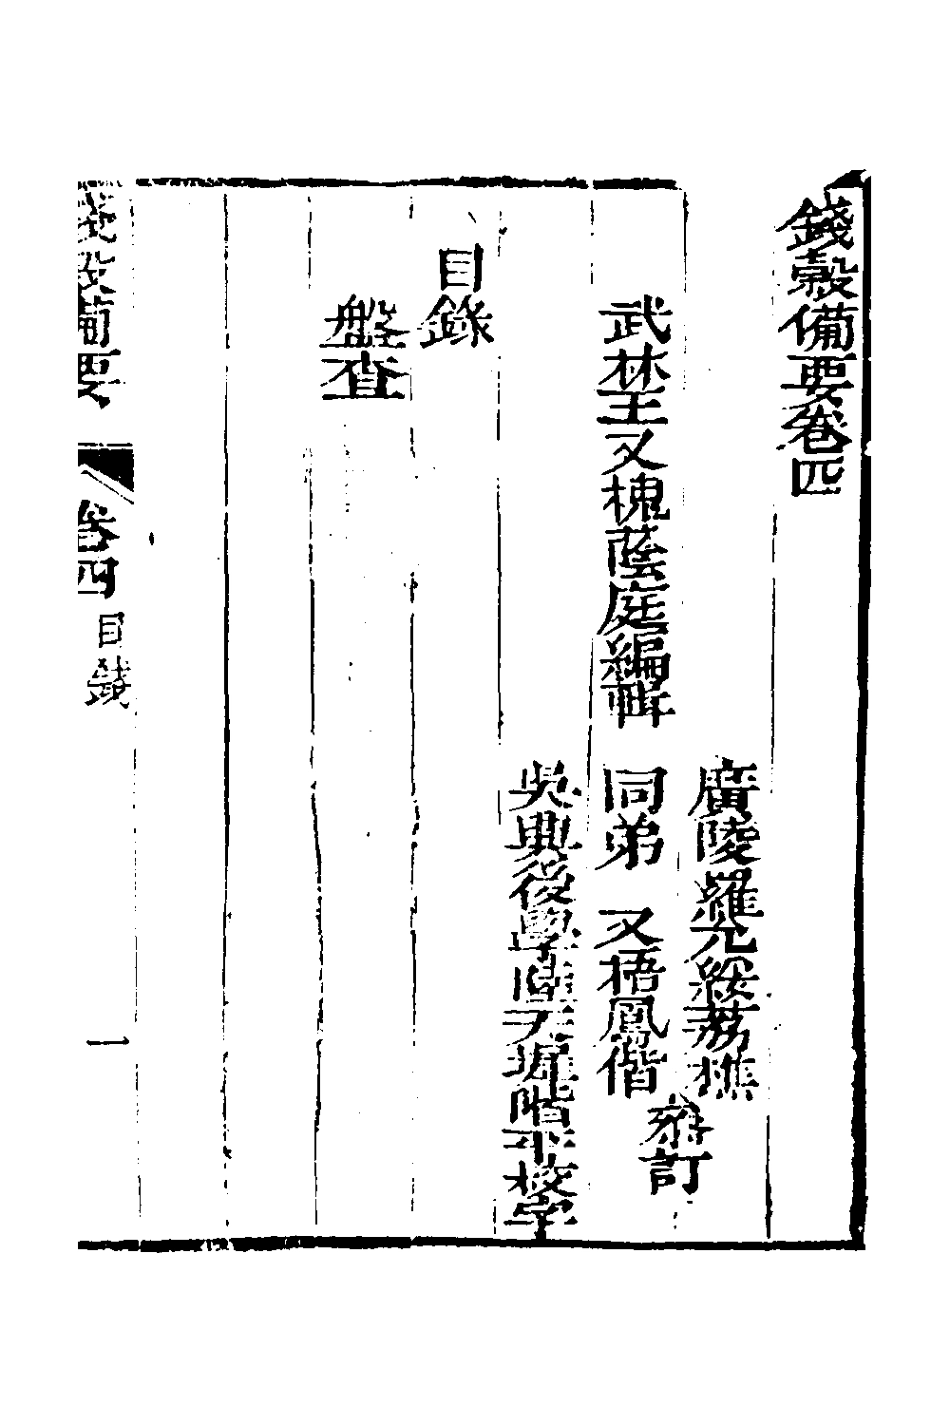 錢穀備要卷四
廣陵羅允綏荔樵
武林王又槐蔭庭編輯 同弟 又梧鳳偕
參訂
吳興後學陸天墀階平校字
目錄
盤查
錢穀備要 卷四 目錄 一